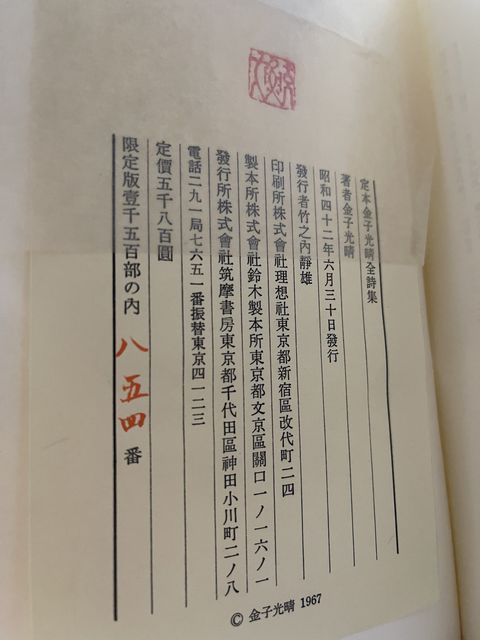 定本金子光晴全詩集
著者金子光晴
昭和四十二年六月三十日發行
發行者竹之內靜雄
印刷所株式會社理想社東京都新宿區改代町二四
製本所株式會社鈴木製本所東京都文京區關口一ノ一六ノ一
發行所株式會社筑摩書房東京都千代田區神田小川町二ノ八
電話二九一局七六五一番振替東京四一二三
定價五千八百圓
限定版壹千五百部の內 八五四 番
© 金子光晴 1967